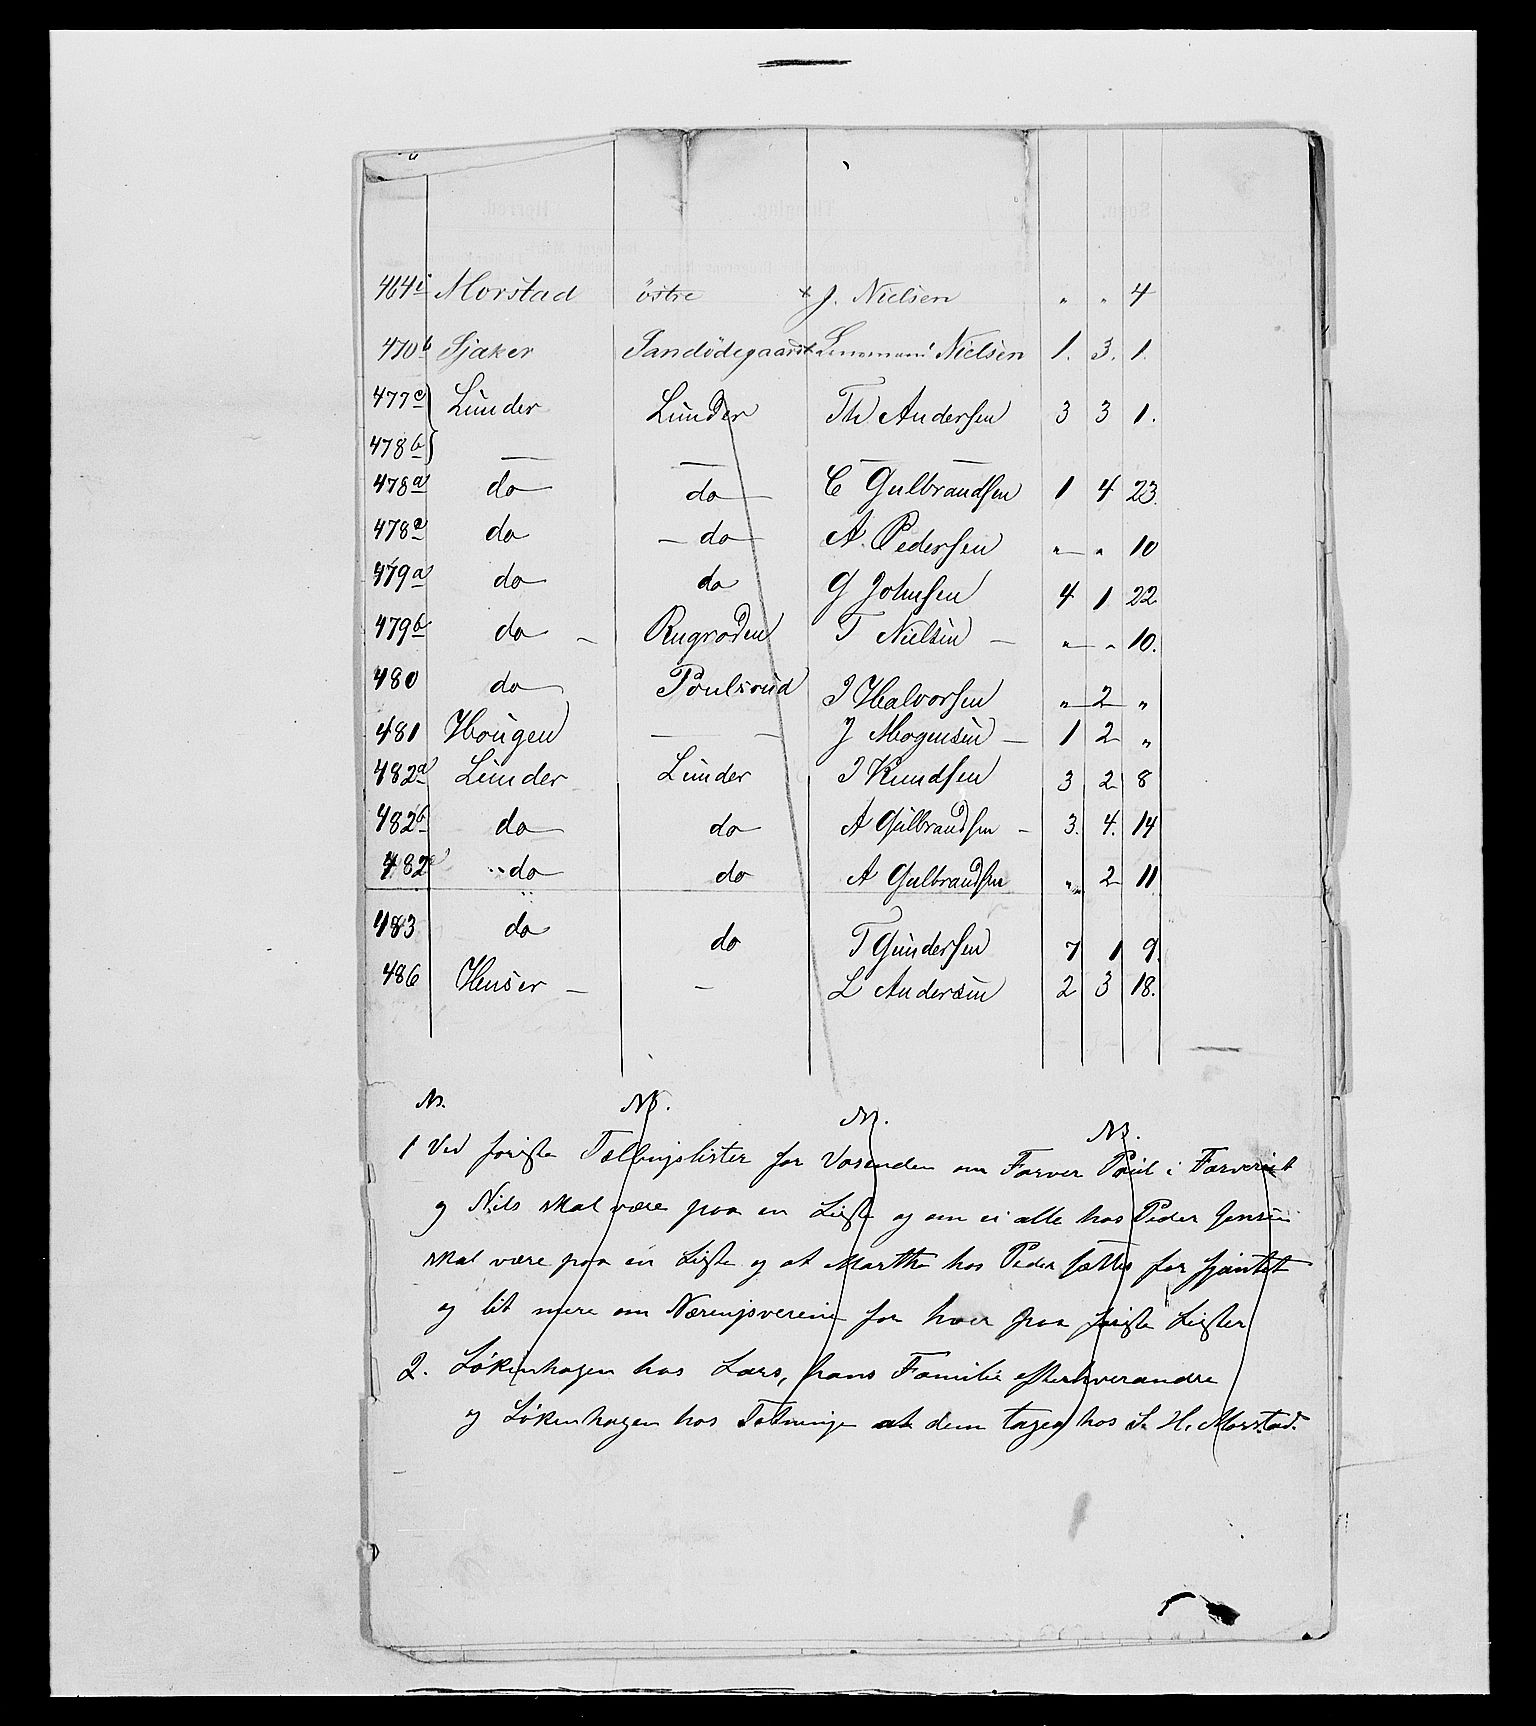 464i Morstad östre × J. Nielsen " " 4
470b Sjaker Sandödegaard Lensmand Nielsen 1. 3. 1.
477c } Lunder Lunder Th Andersen 3 3 1.
478b } — — — —
478a do do C Gulbrandsen 1 4 23.
478e do — do — A. Pedersen " " 10
479a do do G Johnsen 4 1 22
479b do – Rugroden T Nielsen — " " 10.
480 do Poulsrud J Halvorsen " 2 "
481 Hougen — – J Mogensen — 1 2 "
482a Lunder Lunder J Knudsen 3 2 8
482b do do A Gulbrandsen – 3. 4. 14
482c do do A Gulbrandsen " 2 11
483 do do T Gundersen 7 1 9.
486 Henser – – L Andersen 2 3 18.
NB. NB. NB. NB.
1 Ved første Tællingslister for Vasenden om Farver Poul i Farveriet
og Nils skal være paa en Liste og om ei alle hos Peder Jensen
skal være paa en Liste og at Marthe hos Peder sættes for sjantet
og lit mere om Næringsveiene for hver paa første Lister
2. Lökenhagen hos Lars, hans Familie efterhverandre
og Lökenhagen hos Totninge at dem tages hos S. H. Morstad.